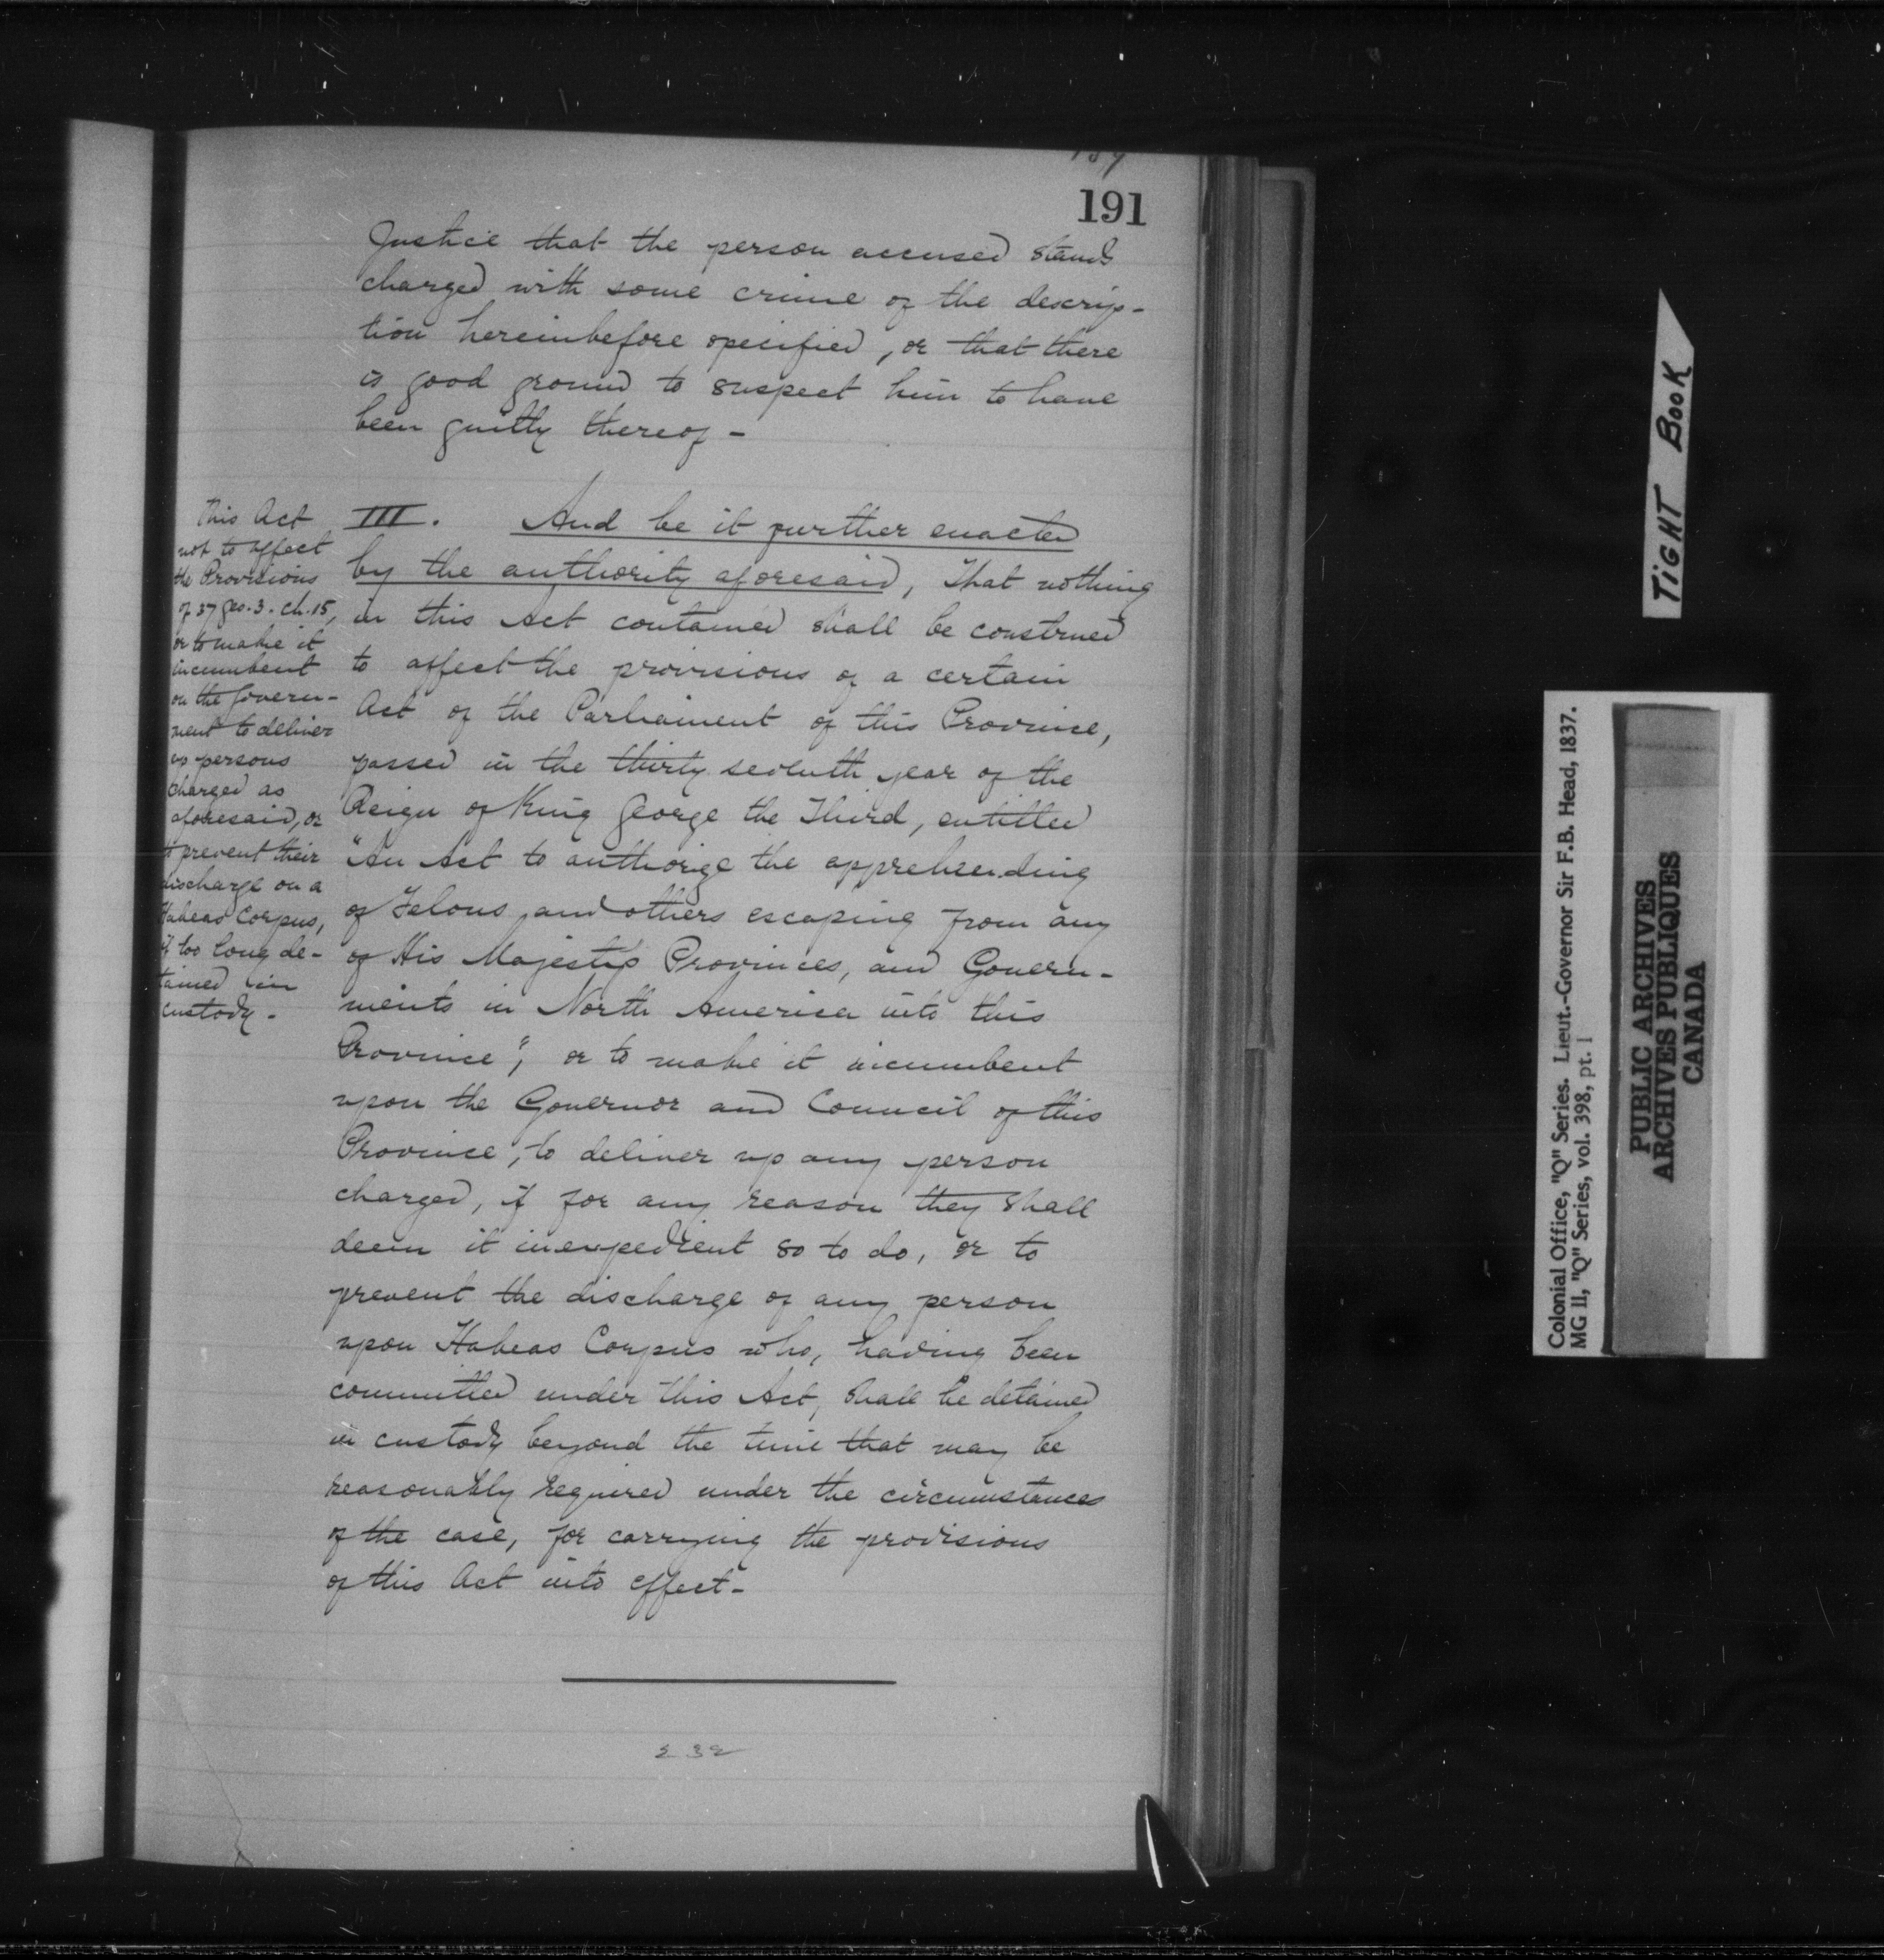 191
Justice that the person accused stands
charged with some crime of the descrip-
tion hereinbefore specified, or that there
is good ground to suspect him to have
been guilty thereof -
This Act
not to affect
the Provisions
of 37 Geo. 3. ch. 15,
or to make it
incumbent
on the Govern-
ment to deliver
up persons
charged as
aforesaid, or
to prevent their
discharge on a
Habeas Corpus,
if too long de-
tained in
custody -
III. And be it further enacted
by the authority aforesaid, That nothing
in this Act contained shall be construed
to affect the provisions of a certain
Act of the Parliament of this Province,
passed in the thirty seventh year of the
Reign of King George the Third, entitled
"An Act to authorize the apprehending
of Felons and others escaping from any
of His Majesty's Provinces, and Govern-
ments in North America into this
Province", or to make it incumbent
upon the Governor and Council of this
Province, to deliver up any person
charged, if for any reason they shall
deem it inexpedient so to do, or to
prevent the discharge of any person
upon Habeas Corpus who, having been
committed under this Act, shall be detained
in custody beyond the time that may be
reasonably required under the circumstances
of the case, for carrying the provisions
of this Act into effect -
232
TIGHT BOOK
Colonial Office, "Q" Series. Lieut.-Governor Sir F.B. Head, 1837.
MG 11, "Q" Series, vol. 398, pt. 1
PUBLIC ARCHIVES
ARCHIVES PUBLIQUES
CANADA